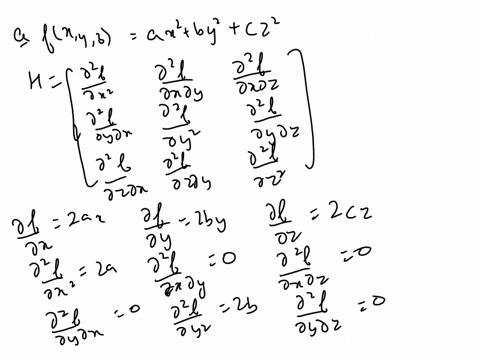 a, f(x,y,z) = ax² + by² + cz²
H = [ ∂²f/∂x² ∂²f/∂x∂y ∂²f/∂x∂z
∂²f/∂y∂x ∂²f/∂y² ∂²f/∂y∂z
∂²f/∂z∂x ∂²f/∂z∂y ∂²f/∂z² ]
∂f/∂x = 2ax ∂f/∂y = 2by ∂f/∂z = 2cz
∂²f/∂x² = 2a ∂²f/∂x∂y = 0 ∂²f/∂x∂z = 0
∂²f/∂y∂x = 0 ∂²f/∂y² = 2b ∂²f/∂y∂z = 0